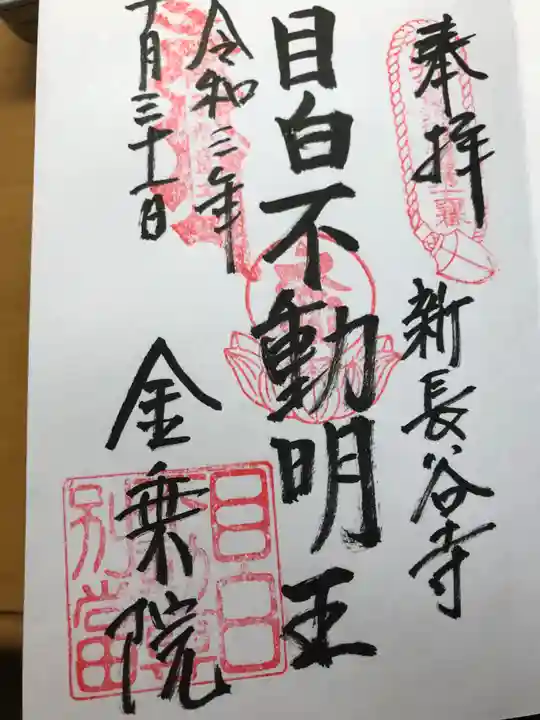 奉拝
新長谷寺
目白不動明王
令和三年
十月三十一日
金乗院
目白
別當